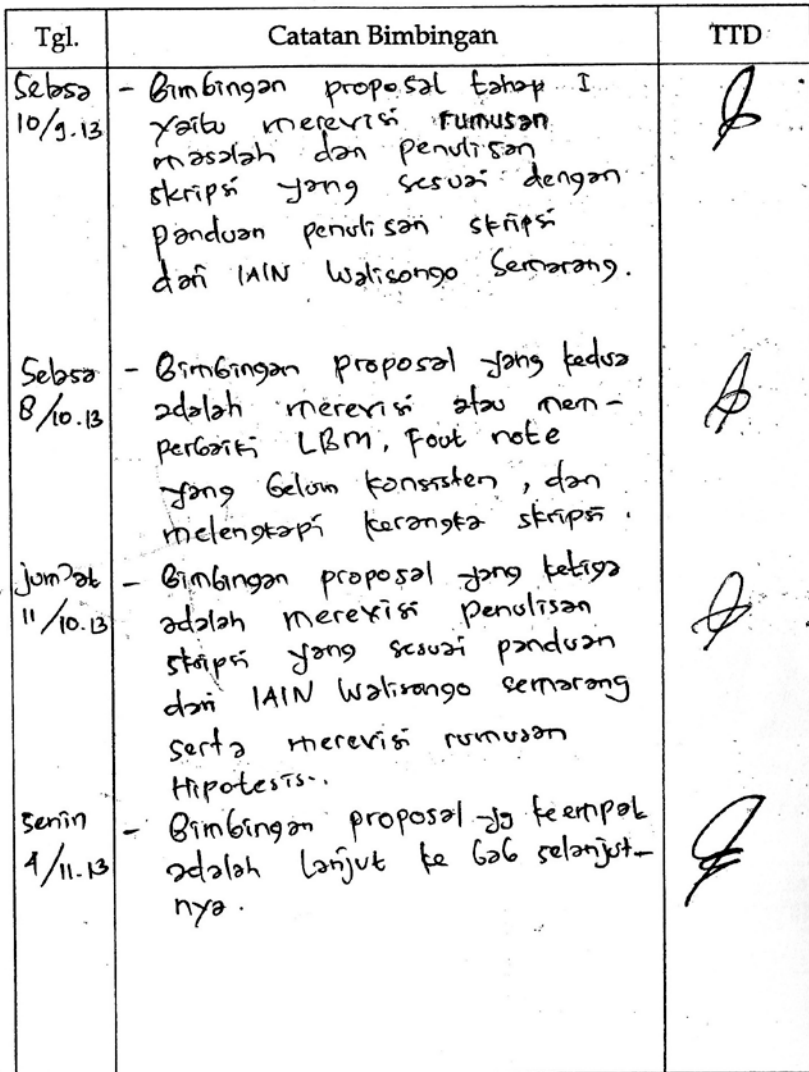 Tgl. Catatan Bimbingan TTD
Selasa - Bimbingan proposal tahap I
10/9.13 yaitu merevisi rumusan
masalah dan penulisan
skripsi yang sesuai dengan
panduan penulisan skripsi
dari IAIN Walisongo Semarang.
Selasa - Bimbingan proposal yang kedua
8/10.13 adalah merevisi atau mem-
perbaiki LBM, Foot note
yang belum konsisten, dan
melengkapi kerangka skripsi.
jum'at - Bimbingan proposal yang ketiga
11/10.13 adalah merevisi penulisan
skripsi yang sesuai panduan
dari IAIN Walisongo semarang
serta merevisi rumusan
Hipotesis.
senin - Bimbingan proposal yg keempat
4/11.13 adalah lanjut ke bab selanjut-
nya.